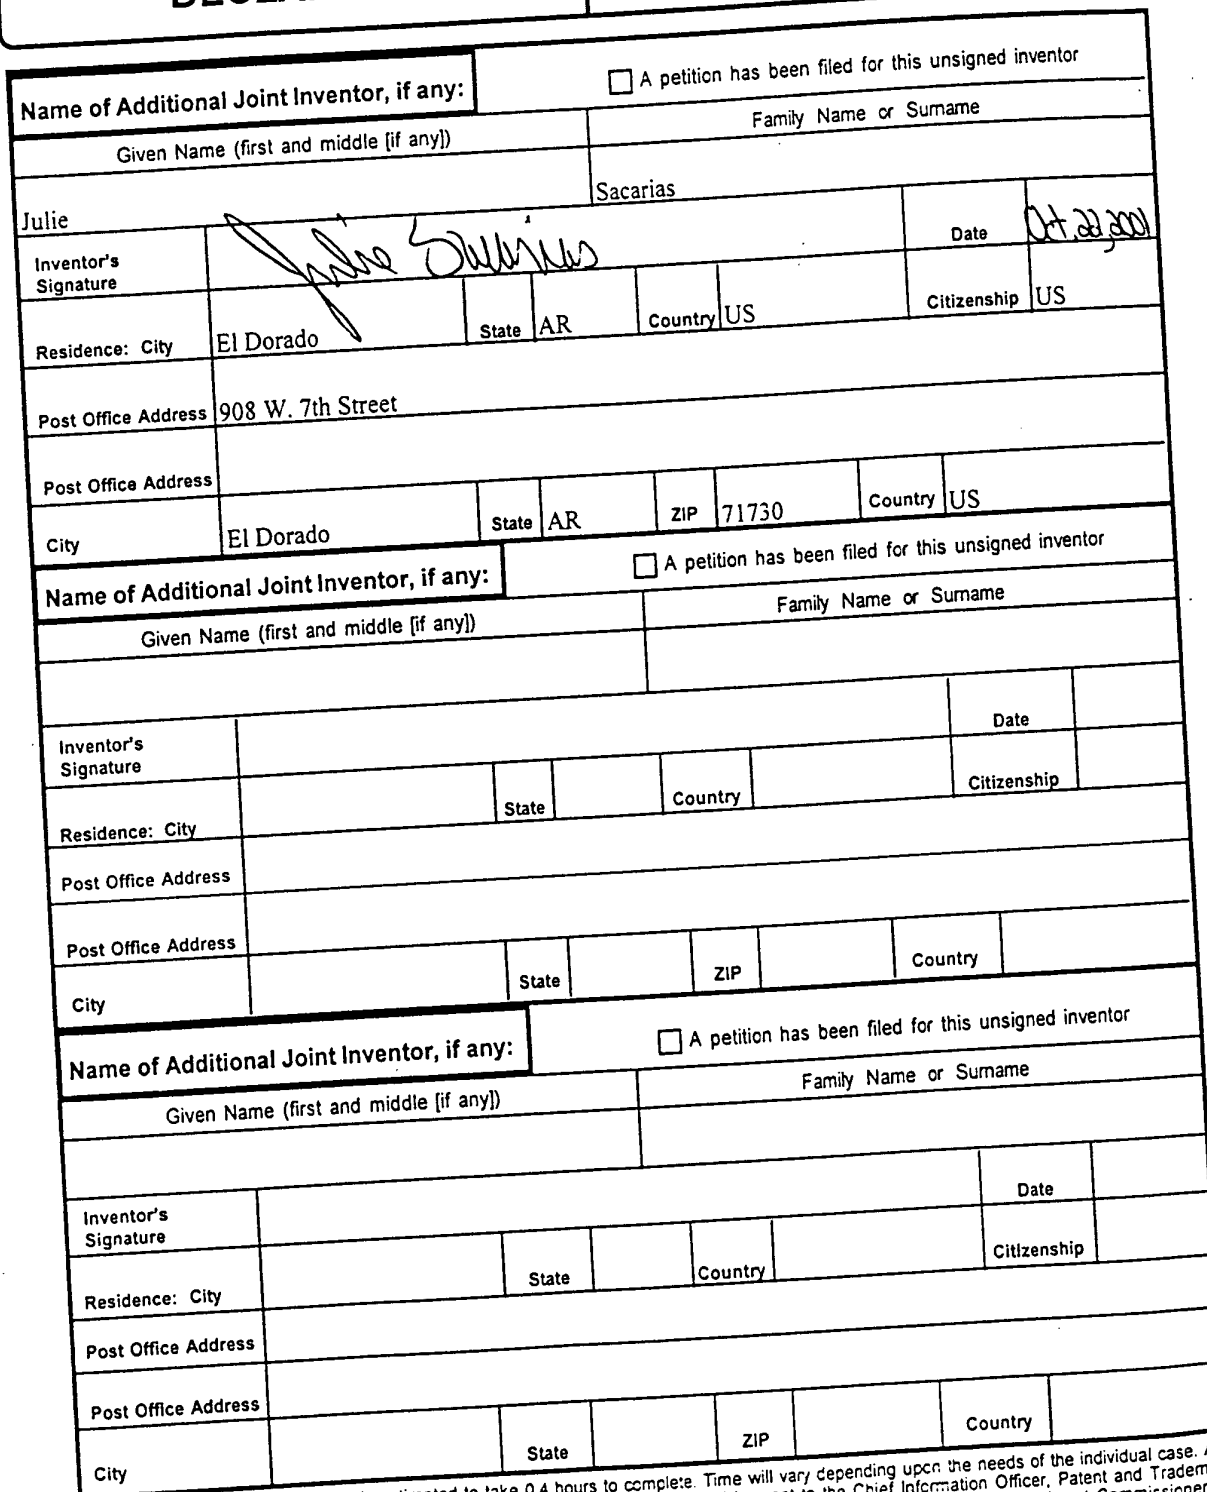 Name of Additional Joint Inventor, if any:
A petition has been filed for this unsigned inventor
Given Name (first and middle [if any])
Family Name or Surname
Julie
Sacarias
Inventor's
Signature
Julie Sacarias
Date
Oct. 22, 2001
Residence: City
El Dorado
State
AR
Country
US
Citizenship
US
Post Office Address
908 W. 7th Street
Post Office Address
City
El Dorado
State
AR
ZIP
71730
Country
US
Name of Additional Joint Inventor, if any:
A petition has been filed for this unsigned inventor
Given Name (first and middle [if any])
Family Name or Surname
Inventor's
Signature
Date
Residence: City
State
Country
Citizenship
Post Office Address
Post Office Address
City
State
ZIP
Country
Name of Additional Joint Inventor, if any:
A petition has been filed for this unsigned inventor
Given Name (first and middle [if any])
Family Name or Surname
Inventor's
Signature
Date
Residence: City
State
Country
Citizenship
Post Office Address
Post Office Address
City
State
ZIP
Country
to take 0.4 hours to complete. Time will vary depending upon the needs of the individual case.
to the Chief Information Officer, Patent and Tradem